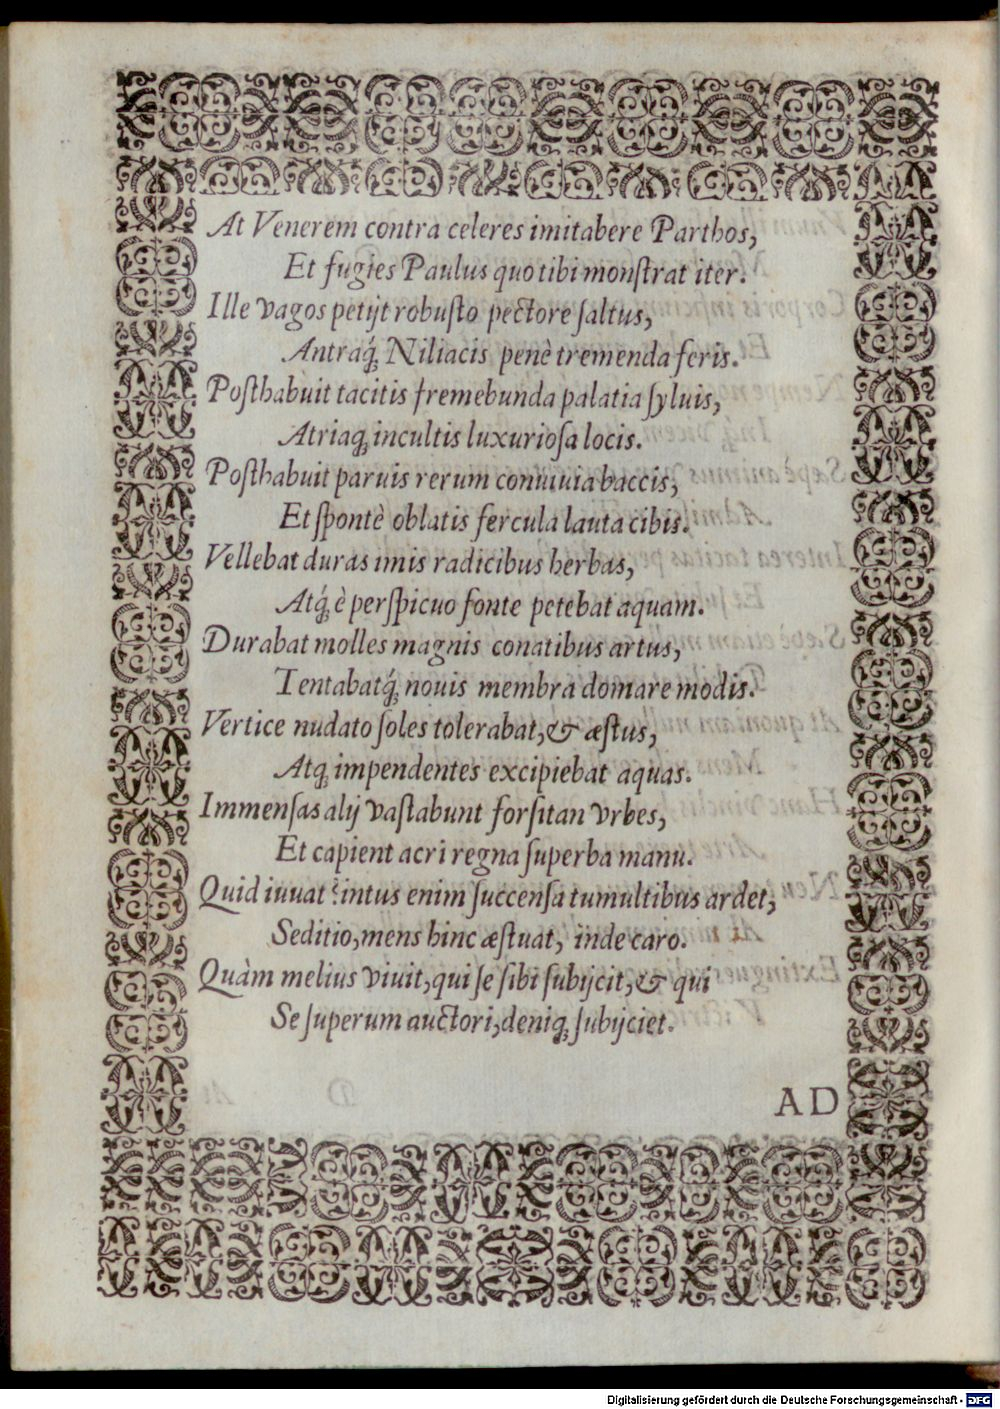 At Venerem contra celeres imitabere Parthos,
Et fugies Paulus quo tibi monſtrat iter.
Ille vagos petijt robuſto pectore ſaltus,
Antraq́; Niliacis penè tremenda feris.
Poſthabuit tacitis fremebunda palatia ſyluis,
Atriaq; incultis luxurioſa locis.
Poſthabuit paruis rerum conuiuia baccis,
Et ſpontè oblatis fercula lauta cibis.
Vellebat duras imis radicibus herbas,
Atq́; è perſpicuo fonte petebat aquam.
Durabat molles magnis conatibus artus,
Tentabatq́; nouis membra domare modis.
Vertice nudato ſoles tolerabat, & æſtus,
Atq; impendentes excipiebat aquas.
Immenſas alij vaſtabunt forſitan vrbes,
Et capient acri regna ſuperba manu.
Quid iuuat? intus enim ſuccenſa tumultibus ardet,
Seditio, mens hinc æſtuat, inde caro.
Quàm melius viuit, qui ſe ſibi ſubijcit, & qui
Se ſuperum auctori, deniq; ſubijciet.
AD
Digitalisierung gefördert durch die Deutsche Forschungsgemeinschaft - DFG